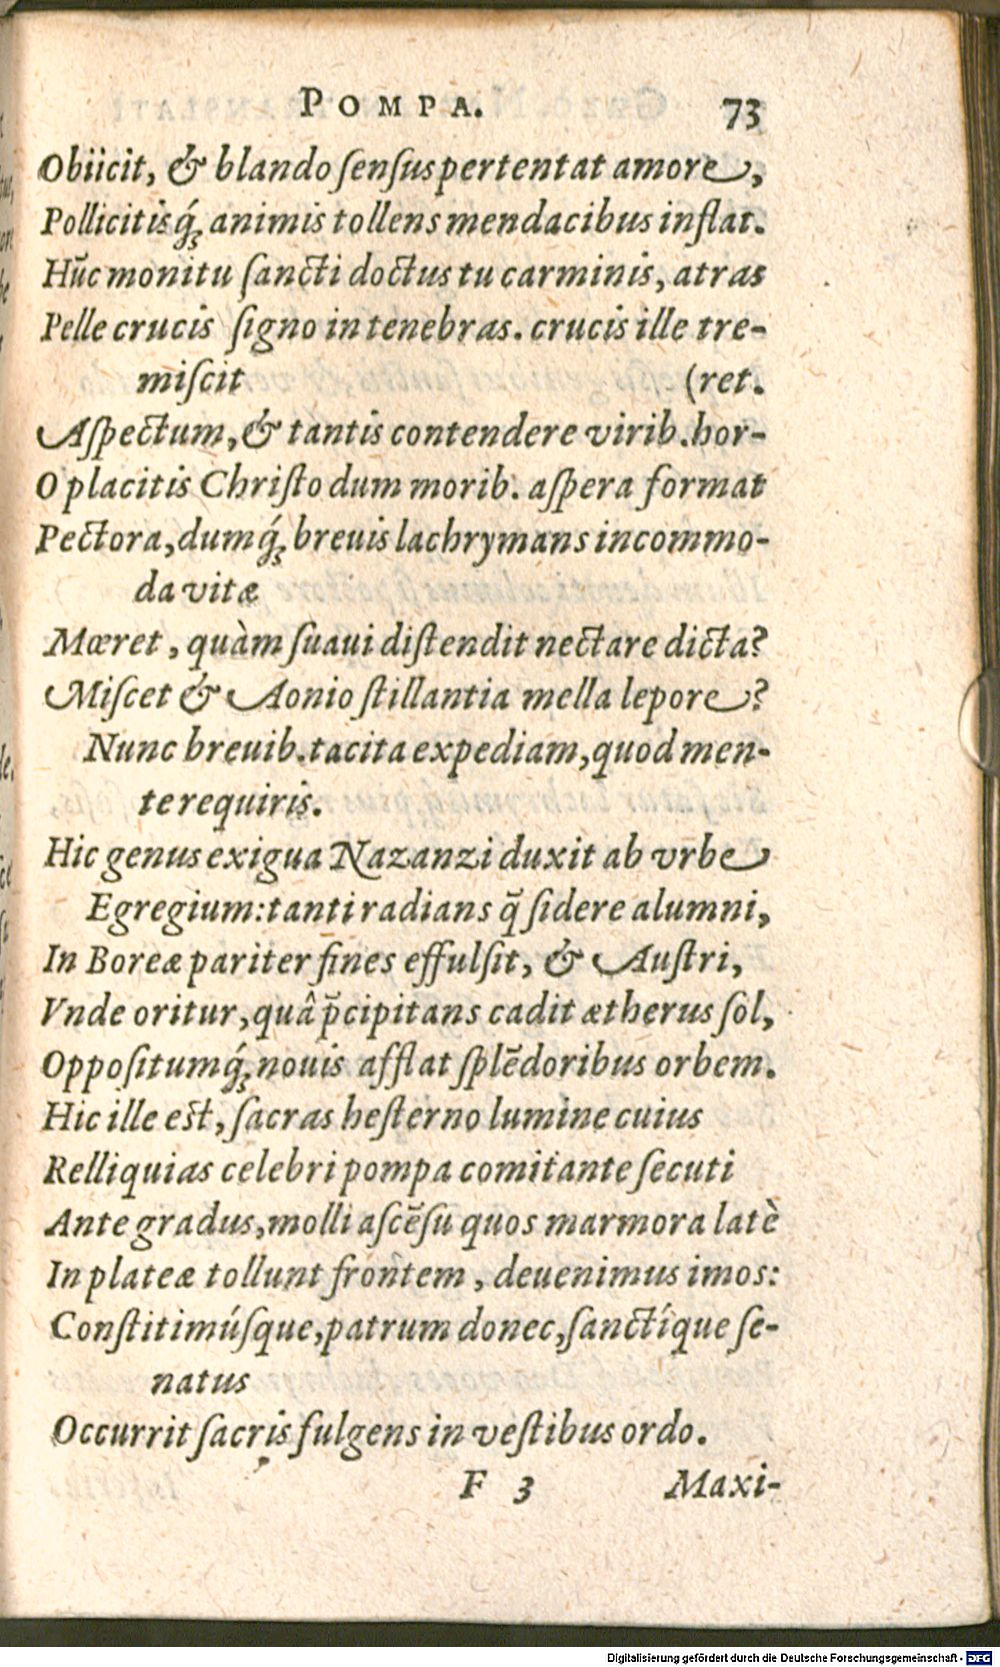 POMPA. 73
Obiicit, & blando ſenſus pertentat amore,
Pollicitisq́; animis tollens mendacibus inflat.
Hũc monitu ſancti doctus tu carminis, atras
Pelle crucis ſigno in tenebras. crucis ille tre-
miſcit (ret.
Aſpectum, & tantis contendere virib. hor-
O placitis Chriſto dum morib. aſpera format
Pectora, dumq́; breuis lachrymans incommo-
da vitæ
Mœret, quàm ſuaui diſtendit nectare dicta?
Miſcet & Aonio ſtillantia mella lepore?
Nunc breuib. tacita expediam, quod men-
te requiris.
Hic genus exigua Nazanzi duxit ab vrbe
Egregium: tanti radians q̃ ſidere alumni,
In Boreæ pariter fines effulſit, & Auſtri,
Vnde oritur, quâ p̃cipitans cadit ætherus ſol,
Oppoſitumq́; nouis afflat ſplẽdoribus orbem.
Hic ille eſt, ſacras heſterno lumine cuius
Relliquias celebri pompa comitante ſecuti
Ante gradus, molli aſcẽſu quos marmora latè
In plateæ tollunt frontem, deuenimus imos:
Conſtitimúſque, patrum donec, ſanctíque ſe-
natus
Occurrit ſacris fulgens in veſtibus ordo.
F 3 Maxi-
Digitalisierung gefördert durch die Deutsche Forschungsgemeinschaft - DFG